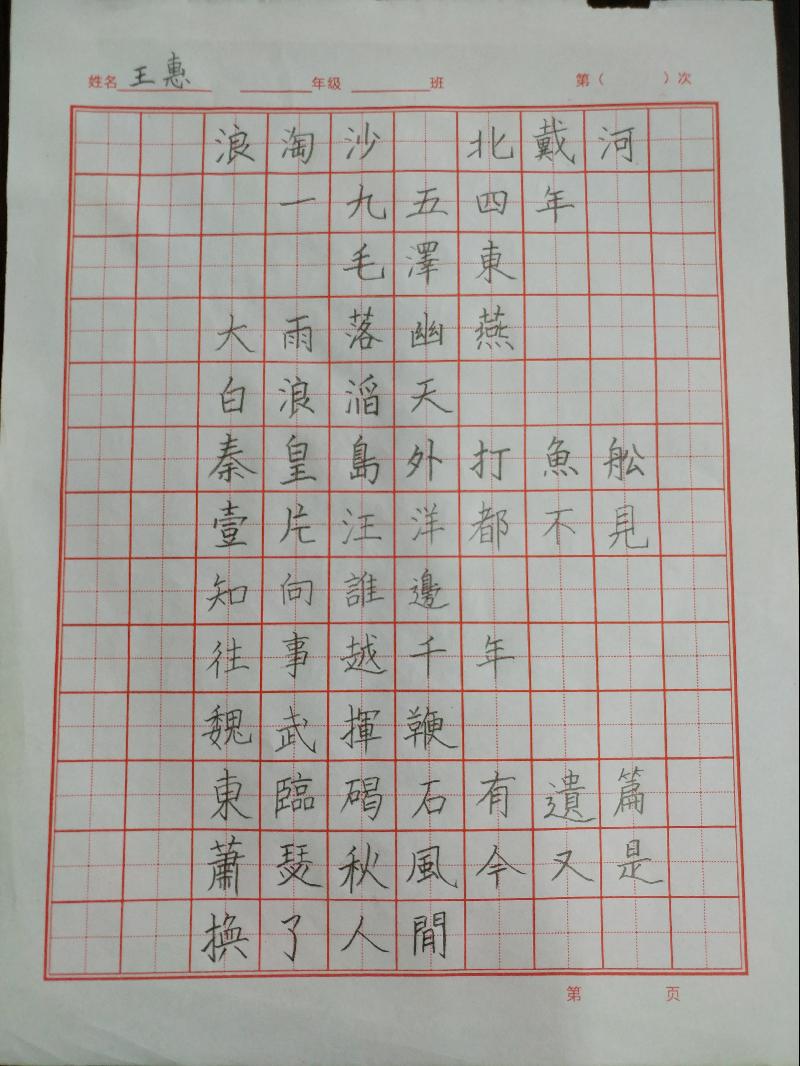 姓名 王惠 年级 班 第( )次
浪淘沙 北戴河
一九五四年
毛澤東
大雨落幽燕
白浪滔天
秦皇島外打魚舩
壹片汪洋都不見
知向誰邊
往事越千年
魏武揮鞭
東臨碣石有遺篇
蕭瑟秋風今又是
換了人間
第 页